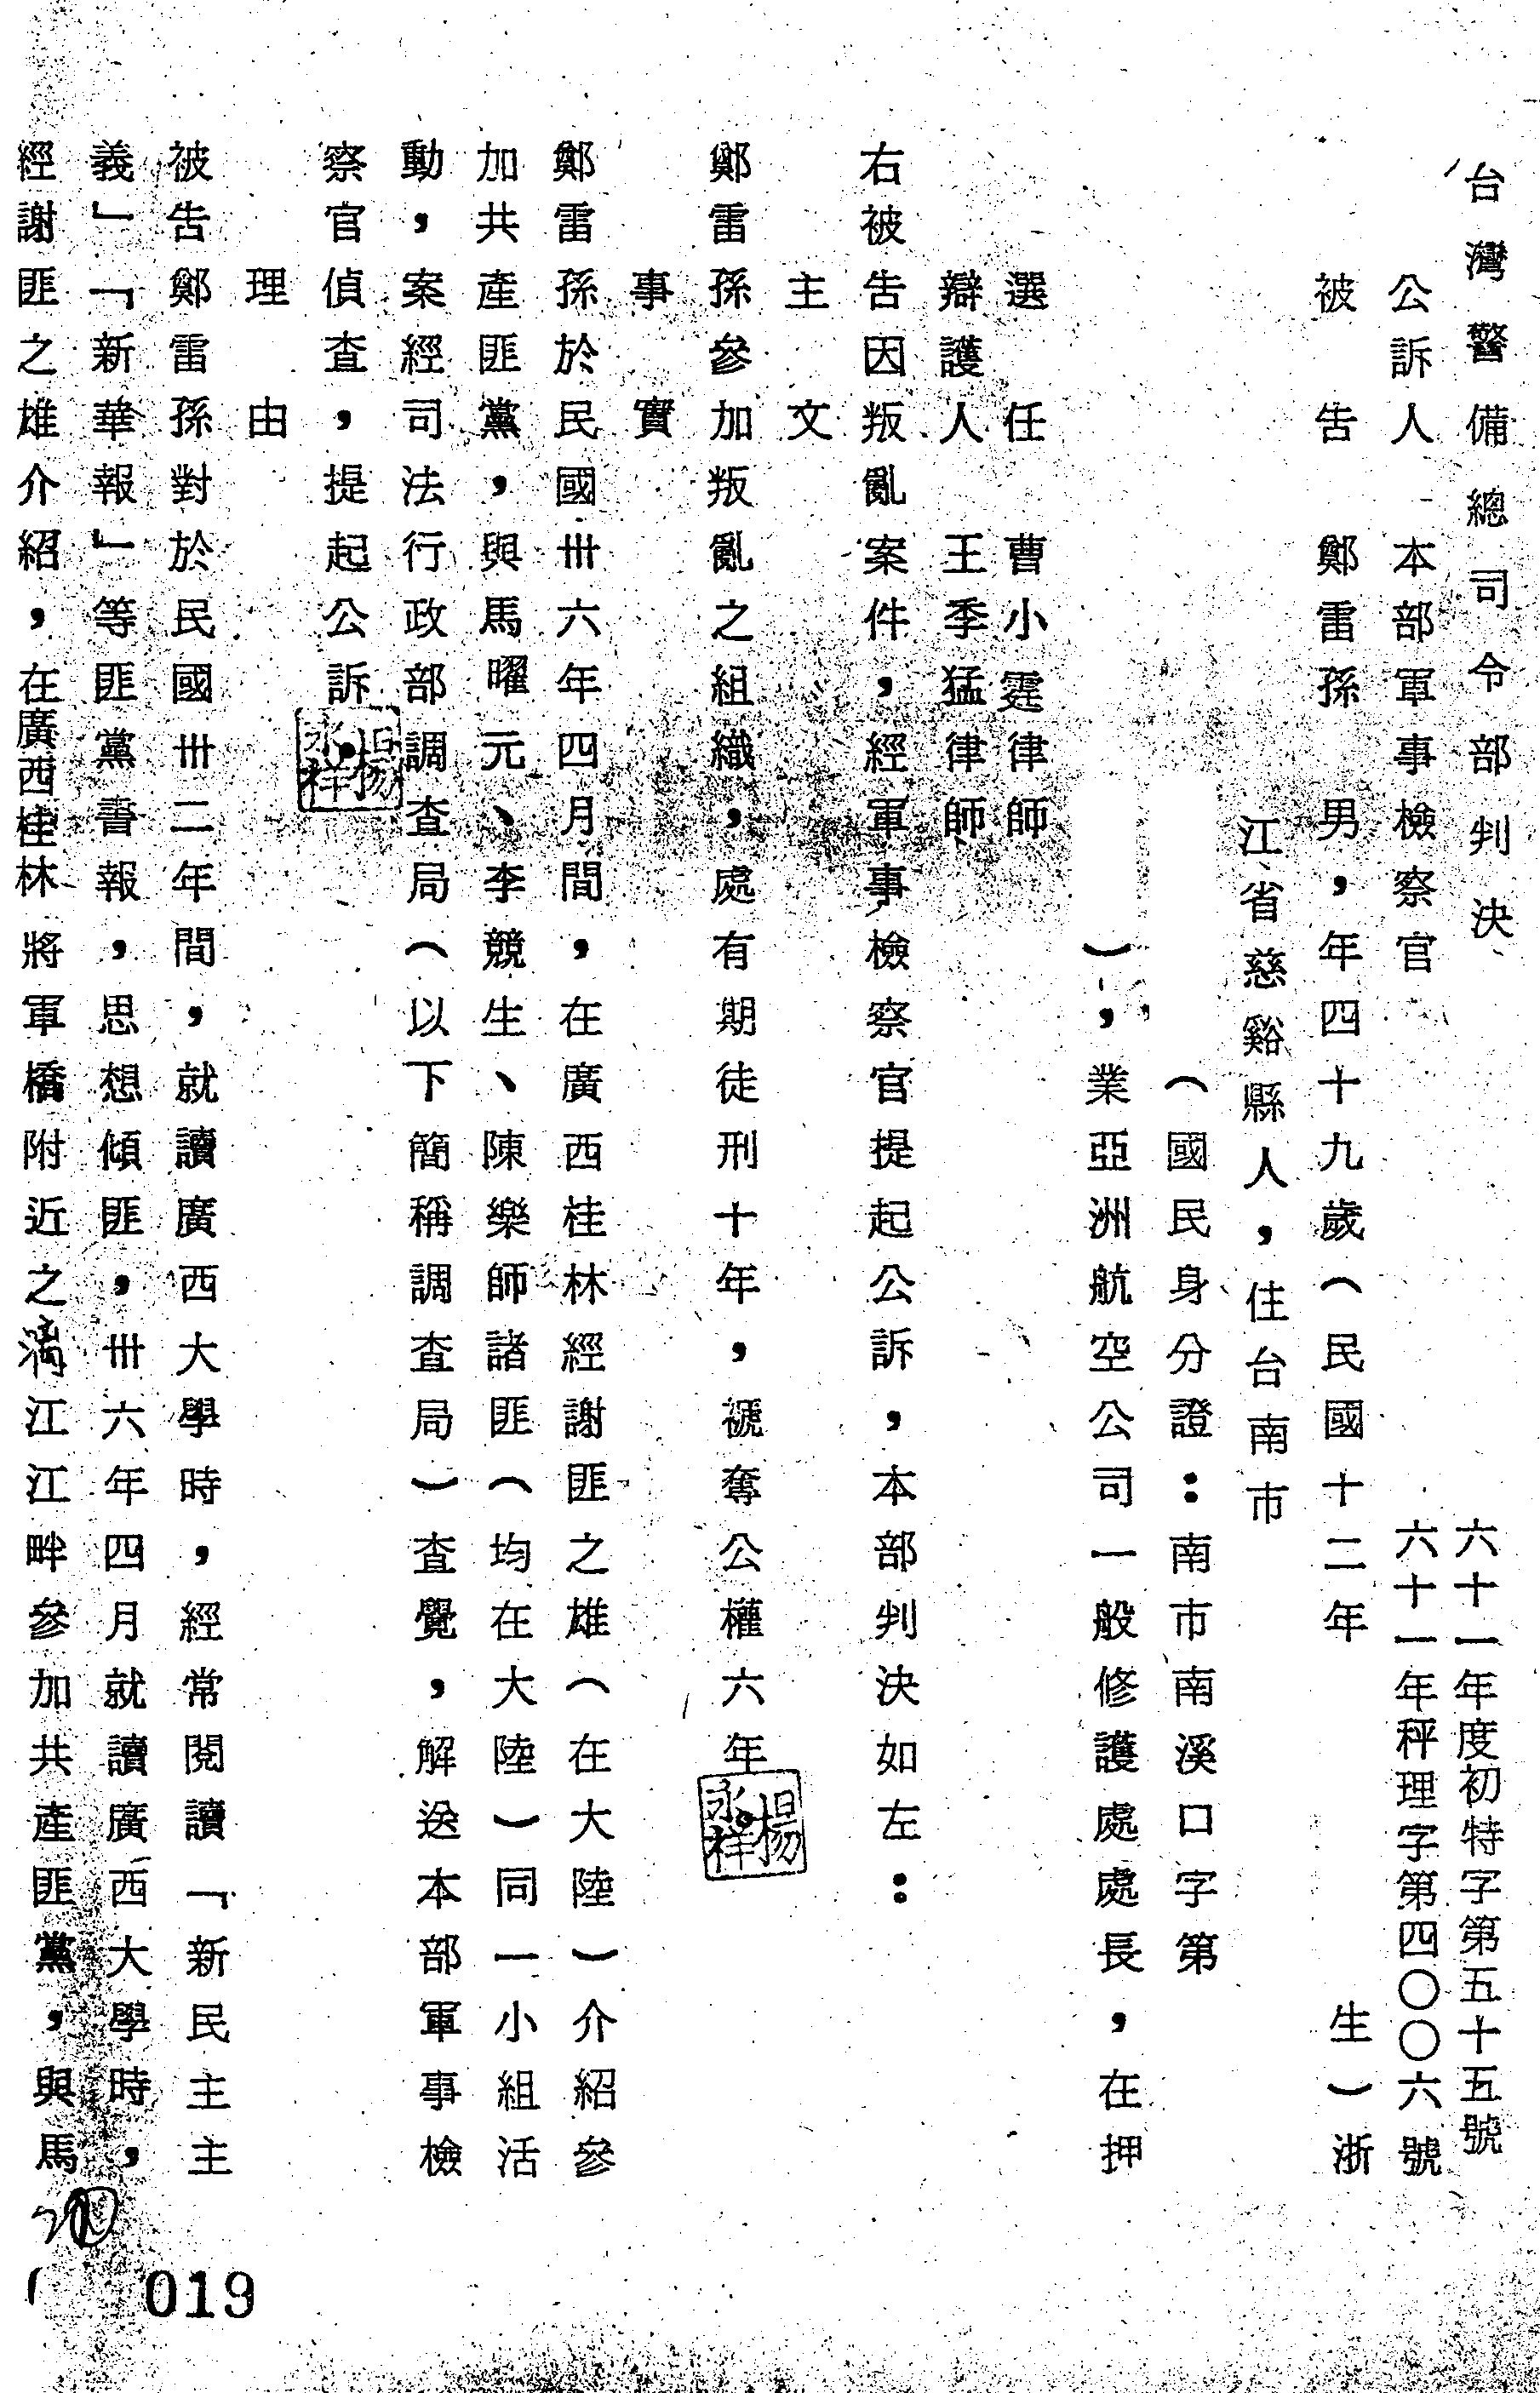 台灣警備總司令部判決
六十一年度初特字第五十五號
六十一年秤理字第四〇〇六號
公訴人 本部軍事檢察官
被告 鄭雷孫 男,年四十九歲(民國十二年 生)浙
江省慈谿縣人,住台南市
(國民身分證:南市南溪口字第
),業亞洲航空公司一般修護處處長,在押
選任 曹小霆律師
辯護人 王季猛律師
右被告因叛亂案件,經軍事檢察官提起公訴,本部判決如左:
主文
鄭雷孫參加叛亂之組織,處有期徒刑十年,褫奪公權六年。
楊永祥
事實
鄭雷孫於民國卅六年四月間,在廣西桂林經謝匪之雄(在大陸)介紹參
加共產匪黨,與馬曜元、李競生、陳樂師諸匪(均在大陸)同一小組活
動,案經司法行政部調查局(以下簡稱調查局)查覺,解送本部軍事檢
察官偵查,提起公訴。
楊永祥
理由
被告鄭雷孫對於民國卅二年間,就讀廣西大學時,經常閱讀「新民主主
義」「新華報」等匪黨書報,思想傾匪,卅六年四月就讀廣西大學時,
經謝匪之雄介紹,在廣西桂林將軍橋附近之漓江江畔參加共產匪黨,與馬
019